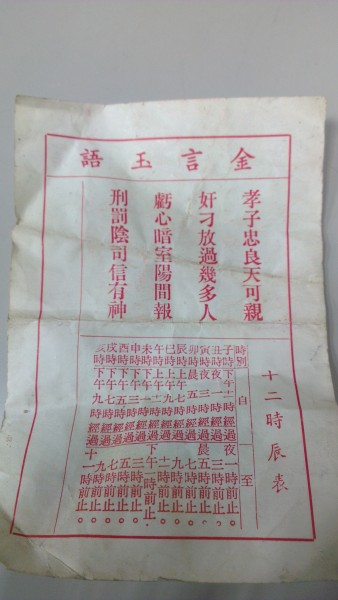 金言玉語
孝子忠良天可親
奸刁放過幾多人
虧心暗室陽間報
刑罰陰司信有神
十二時辰表
時別 自 至
子時下午十一時經過夜一時前止。
丑時夜一時經過三時前止。
寅時夜三時經過晨五時前止。
卯時晨五時經過七時前止。
辰時上午七時經過九時前止。
巳時上午九時經過十一時前止。
午時上午十一時經過下午一時前止。
未時下午一時經過三時前止。
申時下午三時經過五時前止。
酉時下午五時經過七時前止。
戌時下午七時經過九時前止。
亥時下午九時經過十一時前止。